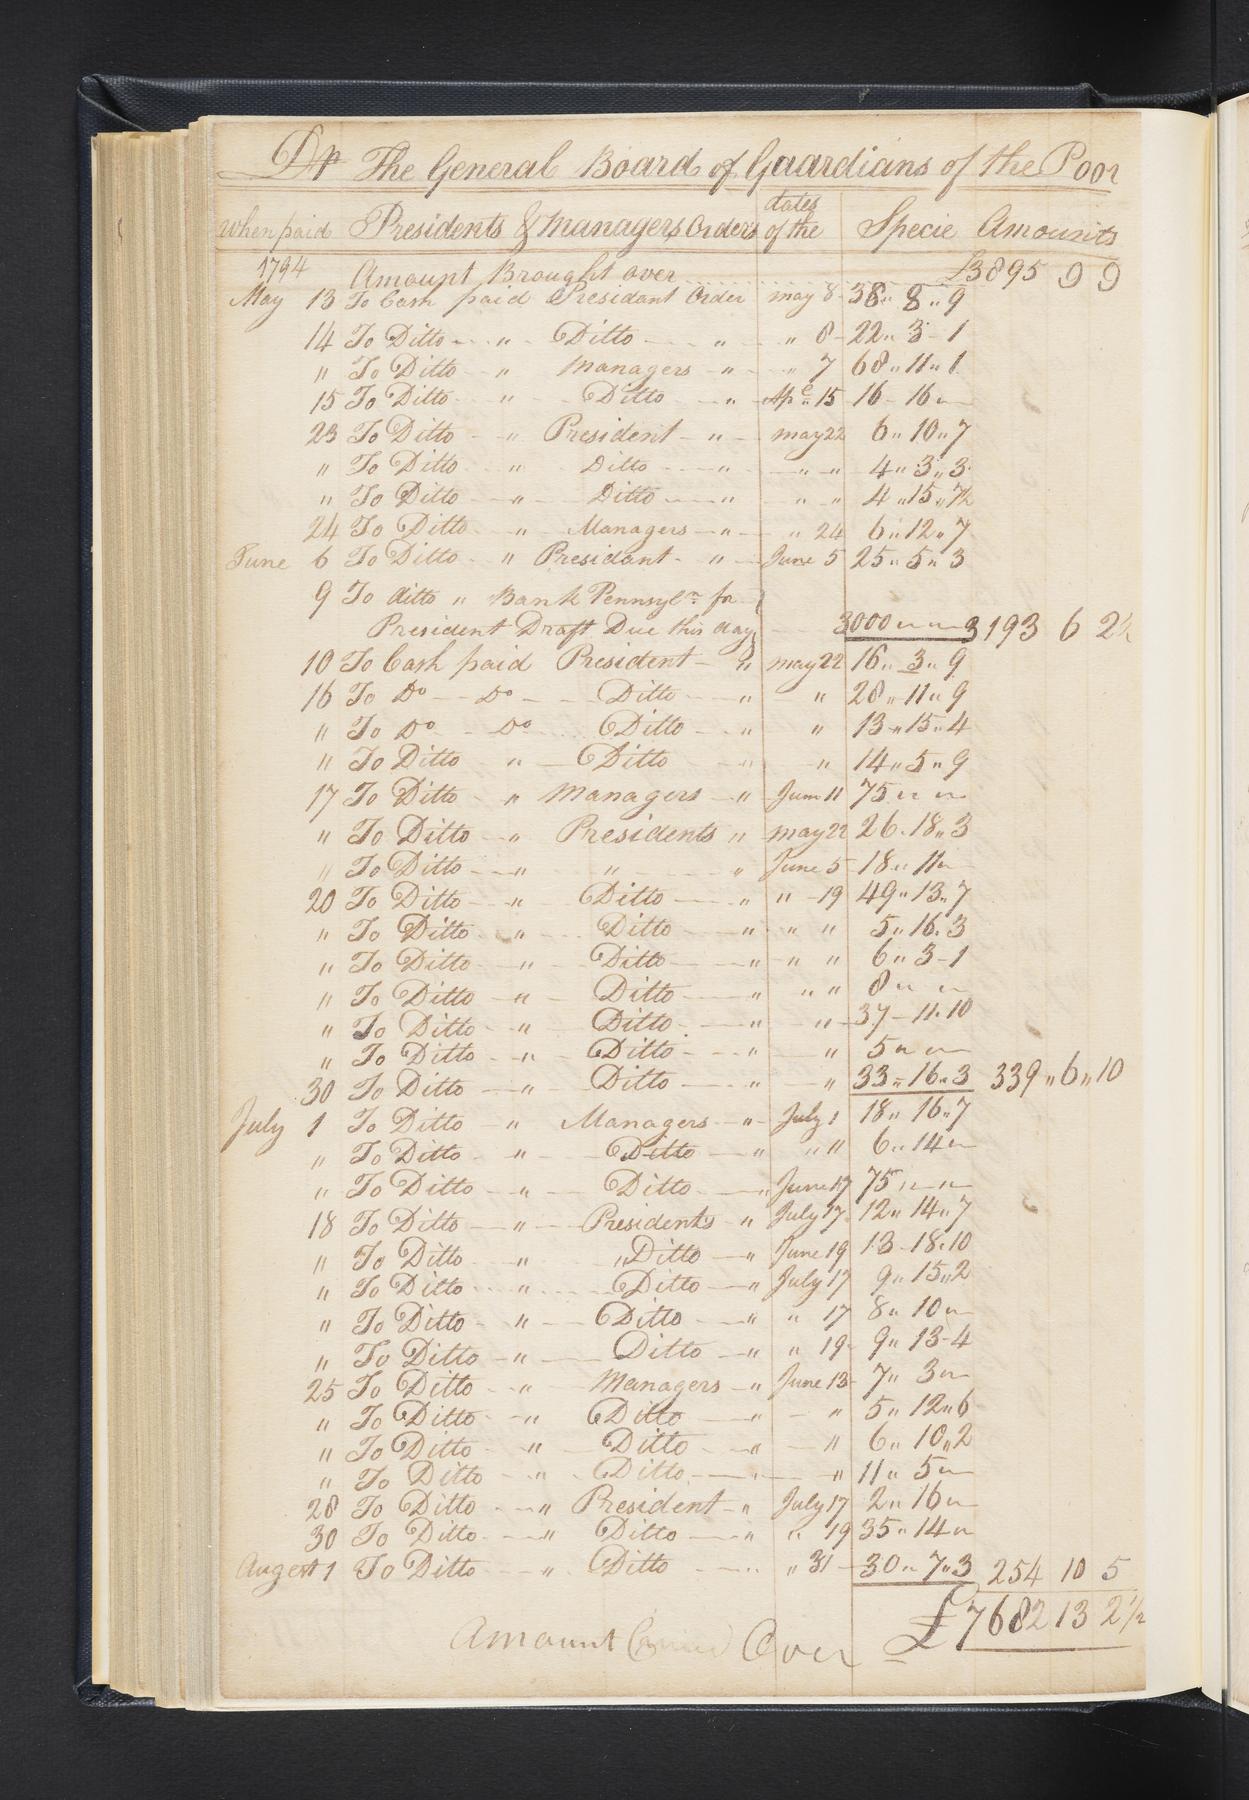 Dr The General Board of Guardians of the Poor
when paid Presidents & Managers Orders dates of the Specie Amounts
1794 Amount Brought over £3895 9 9
May 13 To Cash paid Presidant Order may 8 38 " 8 " 9
14 To Ditto " Ditto " " 8 22 " 3 - 1
" To Ditto " Managers " " 7 68 " 11 " 1
15 To Ditto " Ditto " Ape 15 16 - 16 " —
23 To Ditto " President " may 22 6 " 10 " 7
" To Ditto " Ditto " " " 4 " 3 " 3
" To Ditto " Ditto " " " 4 " 15 " 7½
24 To Ditto " Managers " " 24 6 " 12 " 7
June 6 To Ditto " Presidant " June 5 25 " 5 " 3
9 To ditto " Bank Pennsyla for
President Draft Due this day 3000 " — " — 3193 6 2½
10 To Cash paid President " may 22 16 " 3 " 9
16 To Do Do Ditto " " 28 " 11 " 9
" To Do Do Ditto " " 13 " 15 " 4
" To Ditto " Ditto " " 14 " 5 " 9
17 To Ditto " Managers " June 11 75 " — " —
" To Ditto " Presidents " may 22 26 . 18 " 3
" To Ditto " " " June 5 18 " 11 " —
20 To Ditto " Ditto " " 19 49 " 13 " 7
" To Ditto " Ditto " " " 5 " 16 . 3
" To Ditto " Ditto " " " 6 " 3 - 1
" To Ditto " Ditto " " " 8 " — " —
" To Ditto " Ditto " 37 - 11 . 10
" To Ditto " Ditto " " 5 " — " —
30 To Ditto " Ditto " " 33 " 16 " 3 339 " 6 " 10
July 1 To Ditto " Managers " July 1 18 " 16 " 7
" To Ditto " Ditto " " " 6 " 14 " —
" To Ditto " Ditto " June 17 75 " — " —
18 To Ditto " Presidents " July 17 12 " 14 " 7
" To Ditto " " Ditto " June 19 13 - 18 . 10
" To Ditto " Ditto " July 17 9 " 15 " 2
" To Ditto " Ditto " " 17 8 " 10 " —
" To Ditto " Ditto " " 19 9 " 13 - 4
25 To Ditto " Managers " June 13 7 " 3 " —
" To Ditto " Ditto " " 5 " 12 " 6
" To Ditto " Ditto " " 6 " 10 " 2
" To Ditto " Ditto " " 11 " 5 " —
28 To Ditto " President " July 17 2 " 16 " —
30 To Ditto " Ditto " " 19 35 " 14 " —
Augest 1 To Ditto " Ditto " " 31 30 " 7 " 3 254 10 5
£7682 13 2½
Amount Over